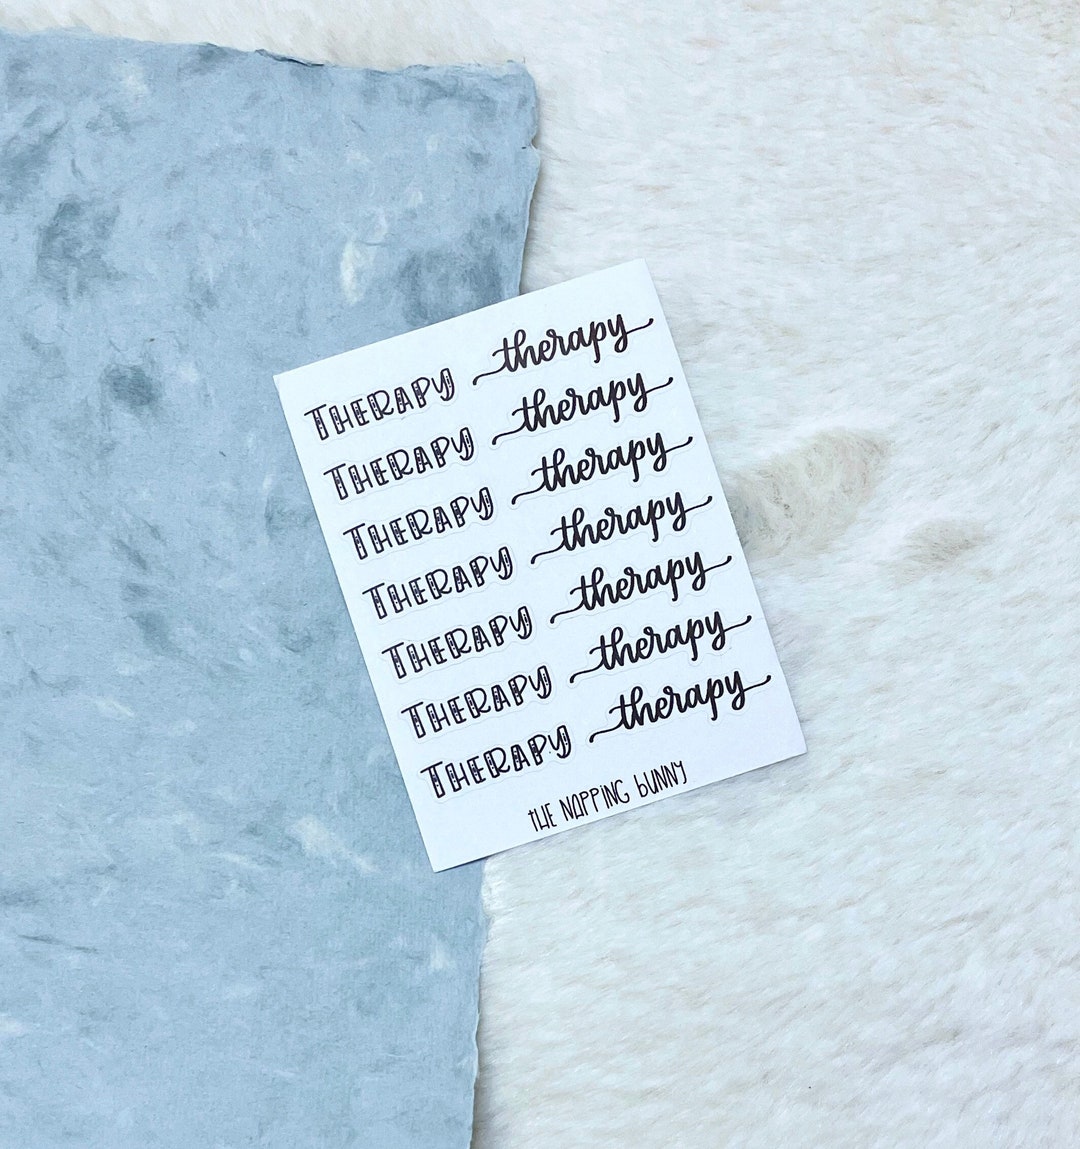 THERAPY therapy
THERAPY therapy
THERAPY therapy
THERAPY therapy
THERAPY therapy
THERAPY therapy
THERAPY therapy
THE NAPPING bUNNY